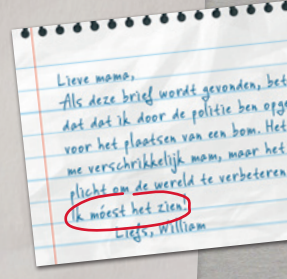 Lieve mama,
Als deze brief wordt gevonden, bet
dat dat ik door de politie ben opge
voor het plaatsen van een bom. Het
me verschrikkelijk mam, maar het
plicht om de wereld te verbeteren
Ik móest het zien!
Liefs, William